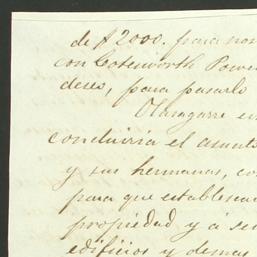 de $2000. para
con Cotesworth Powe
deseo, para pasarlo
Olasagarre en
concluiria el asunt
y sus hermanas, co
para que establescan
propiedad y á se
edificios y demas